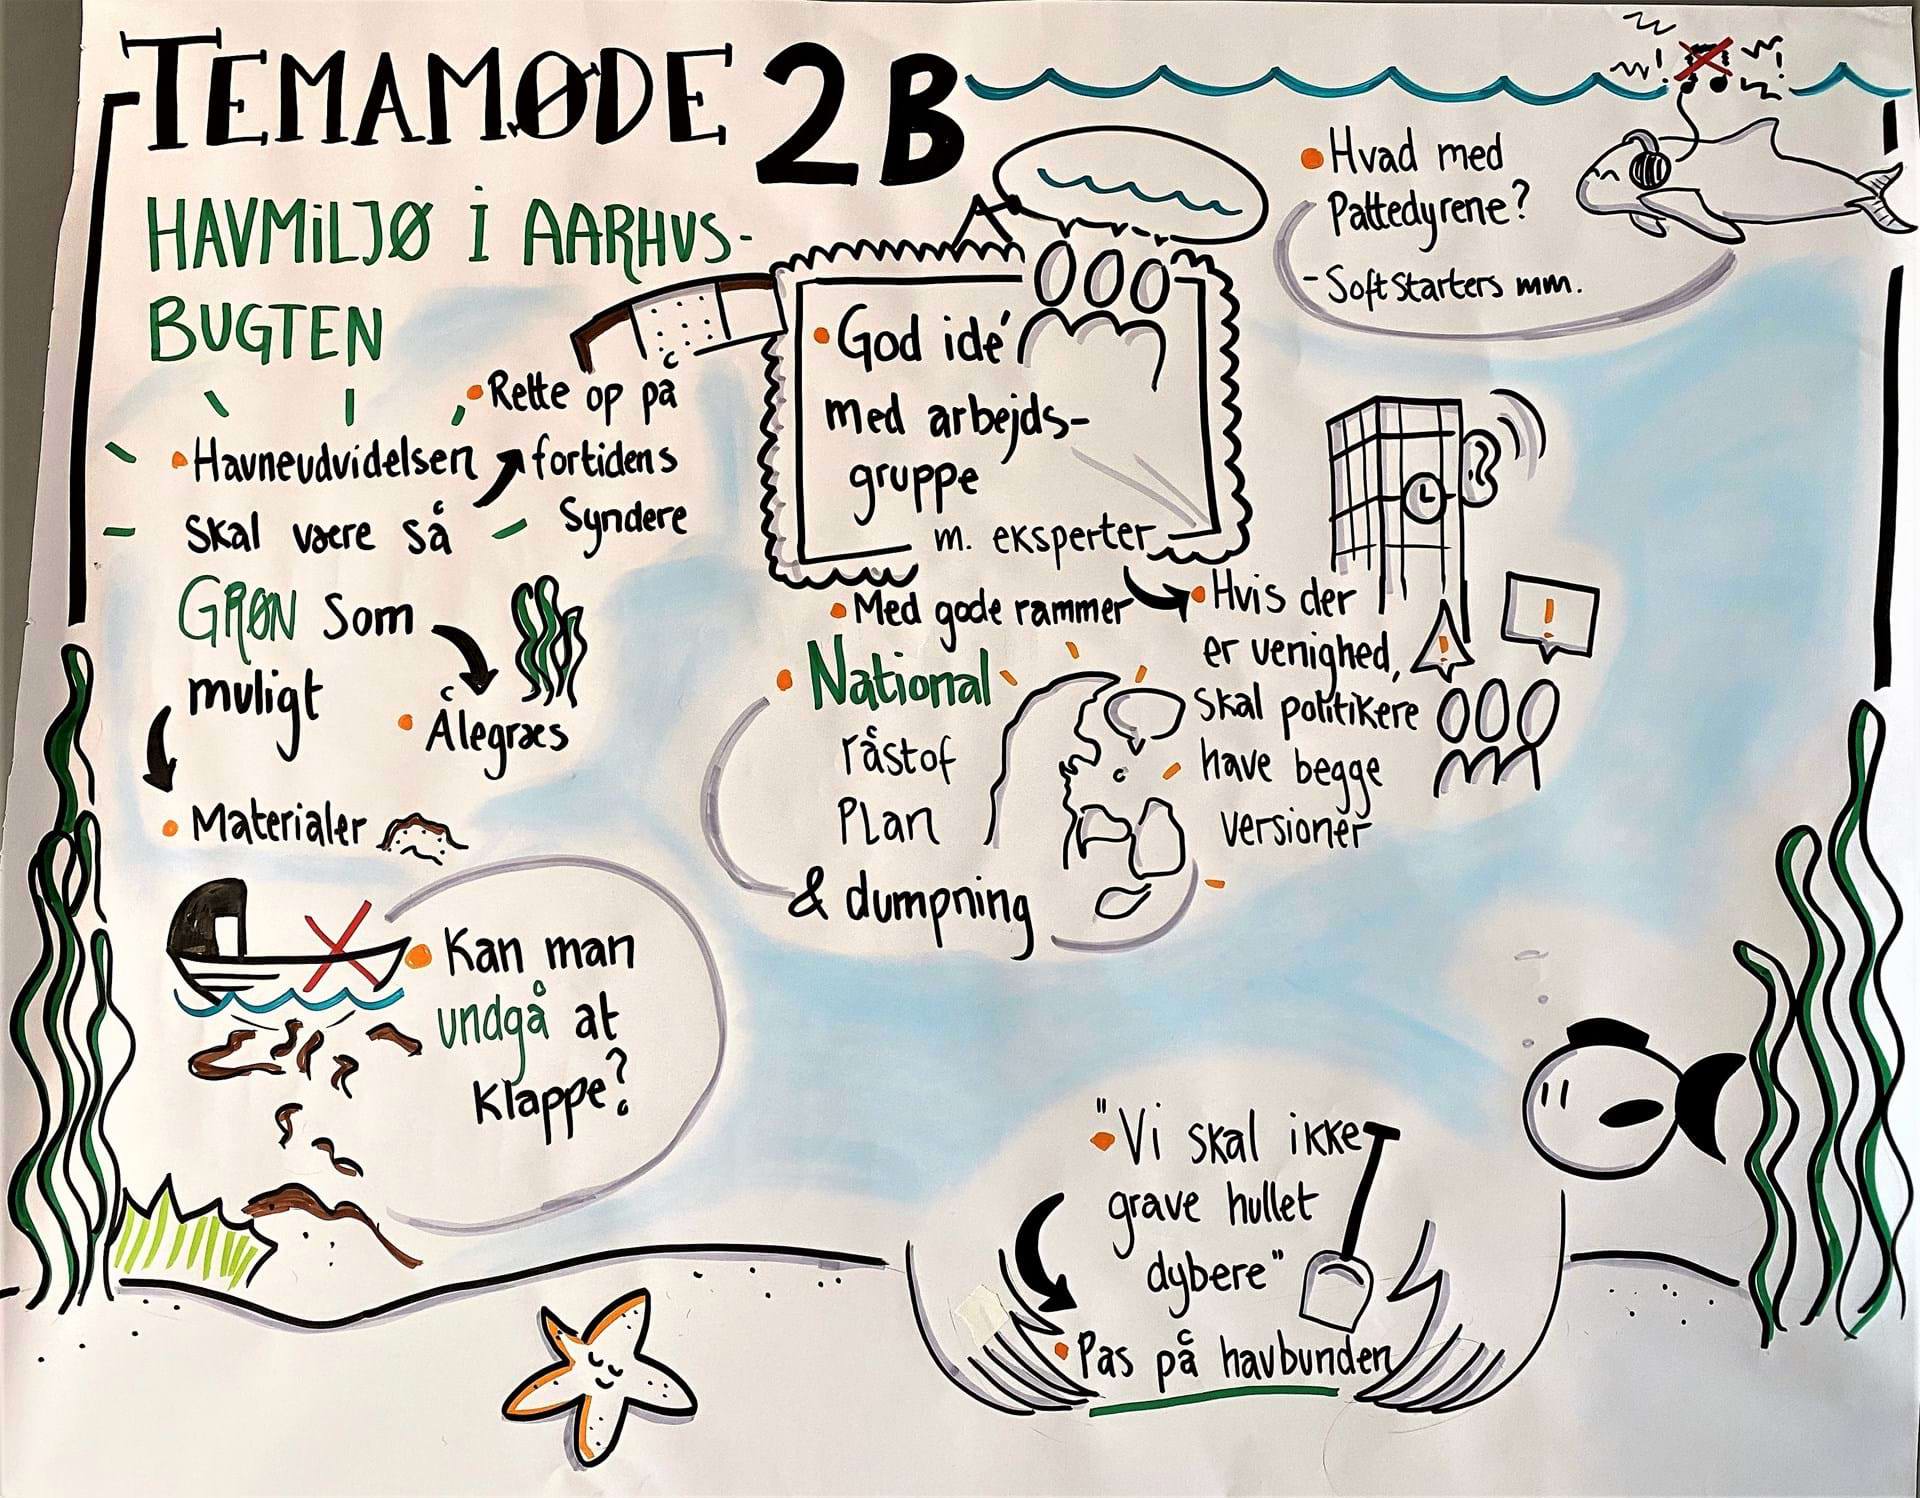 TEMAMØDE 2B
HAVMiLJØ i AARHUS-
BUGTEN
• Havneudvidelsen
skal være så
GRØN som
muligt
• Rette op på
fortidens
Syndere
• Ålegræs
• Materialer
• Kan man
undgå at
klappe?
• God idé
med arbejds-
gruppe
m. eksperter
• Med gode rammer
• National
råstof
PLan
& dumpning
• Hvis der
er uenighed,
skal politikere
have begge
versioner
!
!
• Hvad med
Pattedyrene?
- Softstarters mm.
"Vi skal ikke
grave hullet
dybere"
• Pas på havbunden